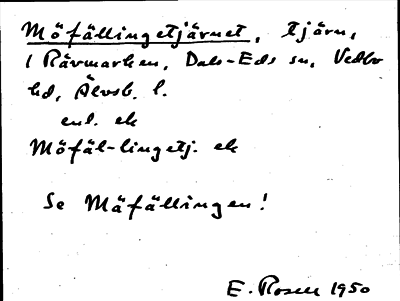 Möfällingetjärnet, tjärn,
i Rävmarken, Dals-Eds sn, Vedbo
hd, Älvsb. l.
enl. ek
Möfäl-lingetj. ek
Se Mäfällingen!
E. Rosell 1950